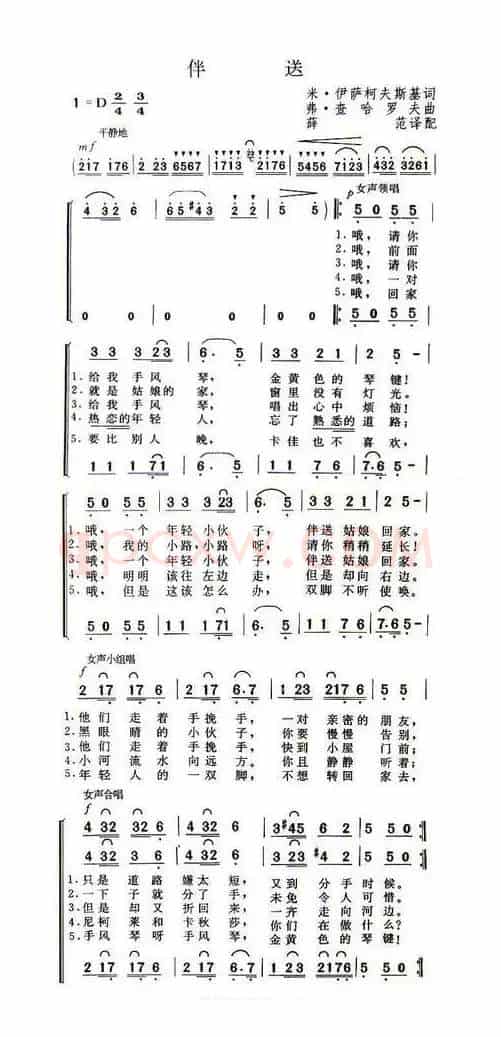 伴 送
1=D 2/4 3/4
米·伊萨柯夫斯基词
弗·查哈罗夫曲
薛 范译配
平静地
mf
217 176 | 2223 6567 | 1713 2176 | 5456 7123 | 432 3261
4 32 6 | 65#43 | 2 2 | 5 5 ‖: 5 0 5 5
p 女声领唱
1.哦，请你
2.哦，前面
3.哦，请你
4.哦，一对
5.哦，回家
0 0 | 0 0 | 0 0 | 0 0 ‖: 5 0 5 5
3 3 3 23 | 6. 5 | 3 3 3 3 | 2 1 2 5
1.给我手风琴， 金黄色的琴键！
2.就是姑娘的家， 窗里没有灯光。
3.给我手风琴， 唱出心中烦恼！
4.热恋的年轻人， 忘了熟悉的道路；
5.要比别人晚， 卡佳也不喜欢，
1 1 1 71 | 6. 5 | 1 1 7 6 | 7.6 5
5 0 5 5 | 3 3 3 23 | 6. 5 | 3 3 3 3 | 2 1 2 5 -
1.哦，一个年轻小伙子，伴送姑娘回家。
2.哦，我的小路小路呀，请你稍稍延长！
3.哦，一个年轻小伙子，伴送姑娘回家。
4.哦，明明该往左边走，但是却向右边。
5.哦，但是这该怎么办，双脚不听使唤。
5 0 5 5 | 1 1 1 71 | 6. 5 | 1 1 7 6 | 7.6 5 -
女声小组唱
f
2 17 17 6 | 2 17 6.7 | 1 23 2176 | 5 5
1.他们走着手挽手，一对亲密的朋友，
2.黑眼睛的小伙子，你要慢慢告别，
3.他们走着手挽手，快到小屋门前；
4.小河流水向远方。你且静静听着；
5.年轻人的一双脚，不想转回家去，
女声合唱
f
4 32 32 6 | 4 32 6 | 3#45 6 2 | 5 5 0 :‖
4 32 32 6 | 4 32 6 | 3 23 #4 6 | 5 5 0 :‖
1.只是道路嫌太短，又到分手时候。
2.一下子就分了手，未免令人可惜。
3.但是却又折回来，一齐走向河边。
4.尼柯莱和卡秋莎，你们在做什么？
5.手风琴呀手风琴，金黄色的琴键！
2 17 17 6 | 2 17 6.7 | 1 23 2176 | 5 5 0 :‖